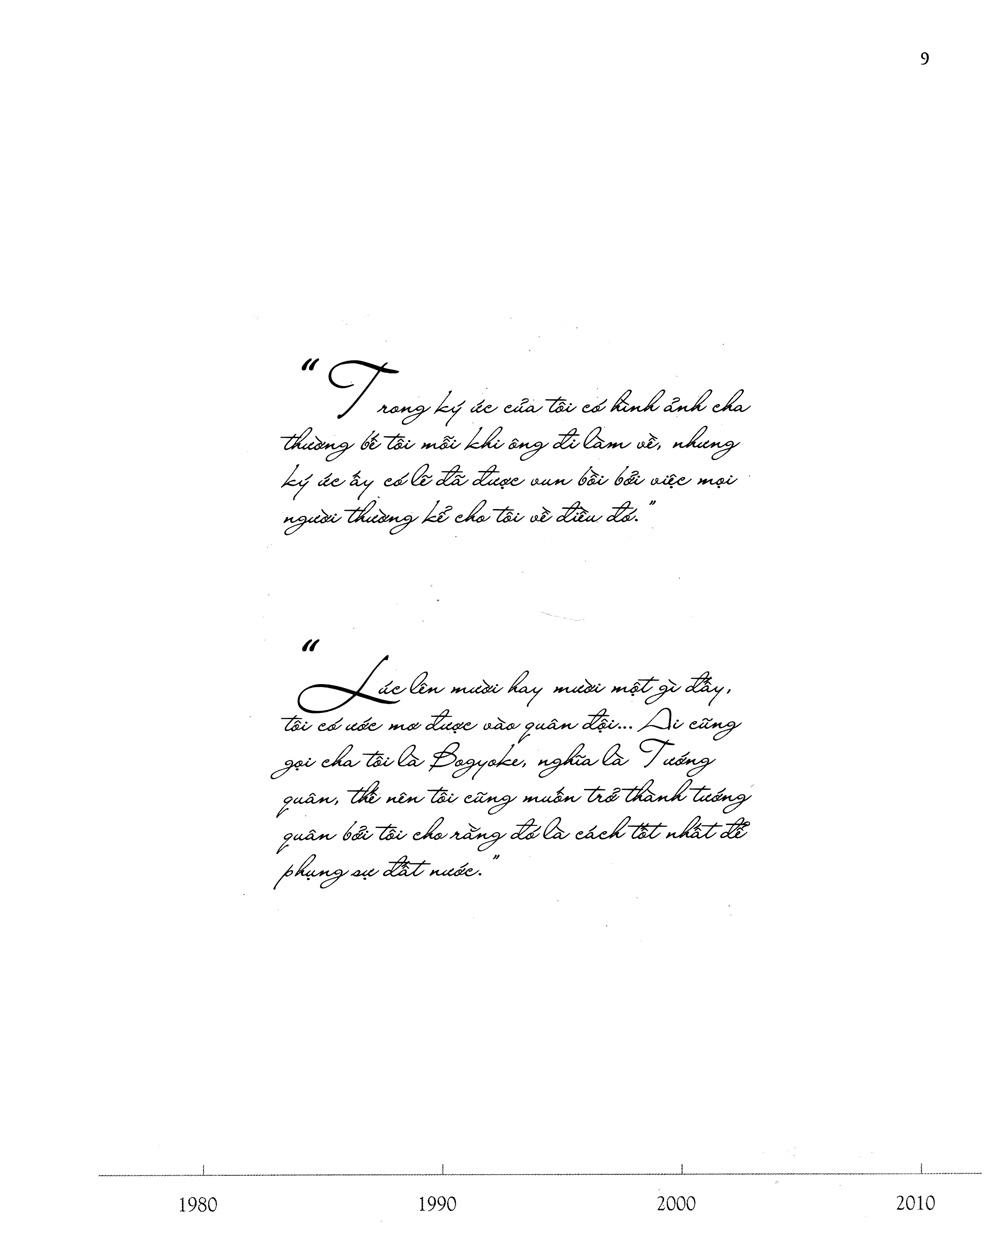 9
“Trong ký ức của tôi có hình ảnh cha
thường bế tôi mỗi khi ông đi làm về, nhưng
ký ức ấy có lẽ đã được vun bồi bởi việc mọi
người thường kể cho tôi về điều đó.”
“Lúc lên mười hay mười một gì đấy,
tôi có ước mơ được vào quân đội... Ai cũng
gọi cha tôi là Bogyoke, nghĩa là Tướng
quân, thế nên tôi cũng muốn trở thành tướng
quân bởi tôi cho rằng đó là cách tốt nhất để
phụng sự đất nước.”
1980 1990 2000 2010